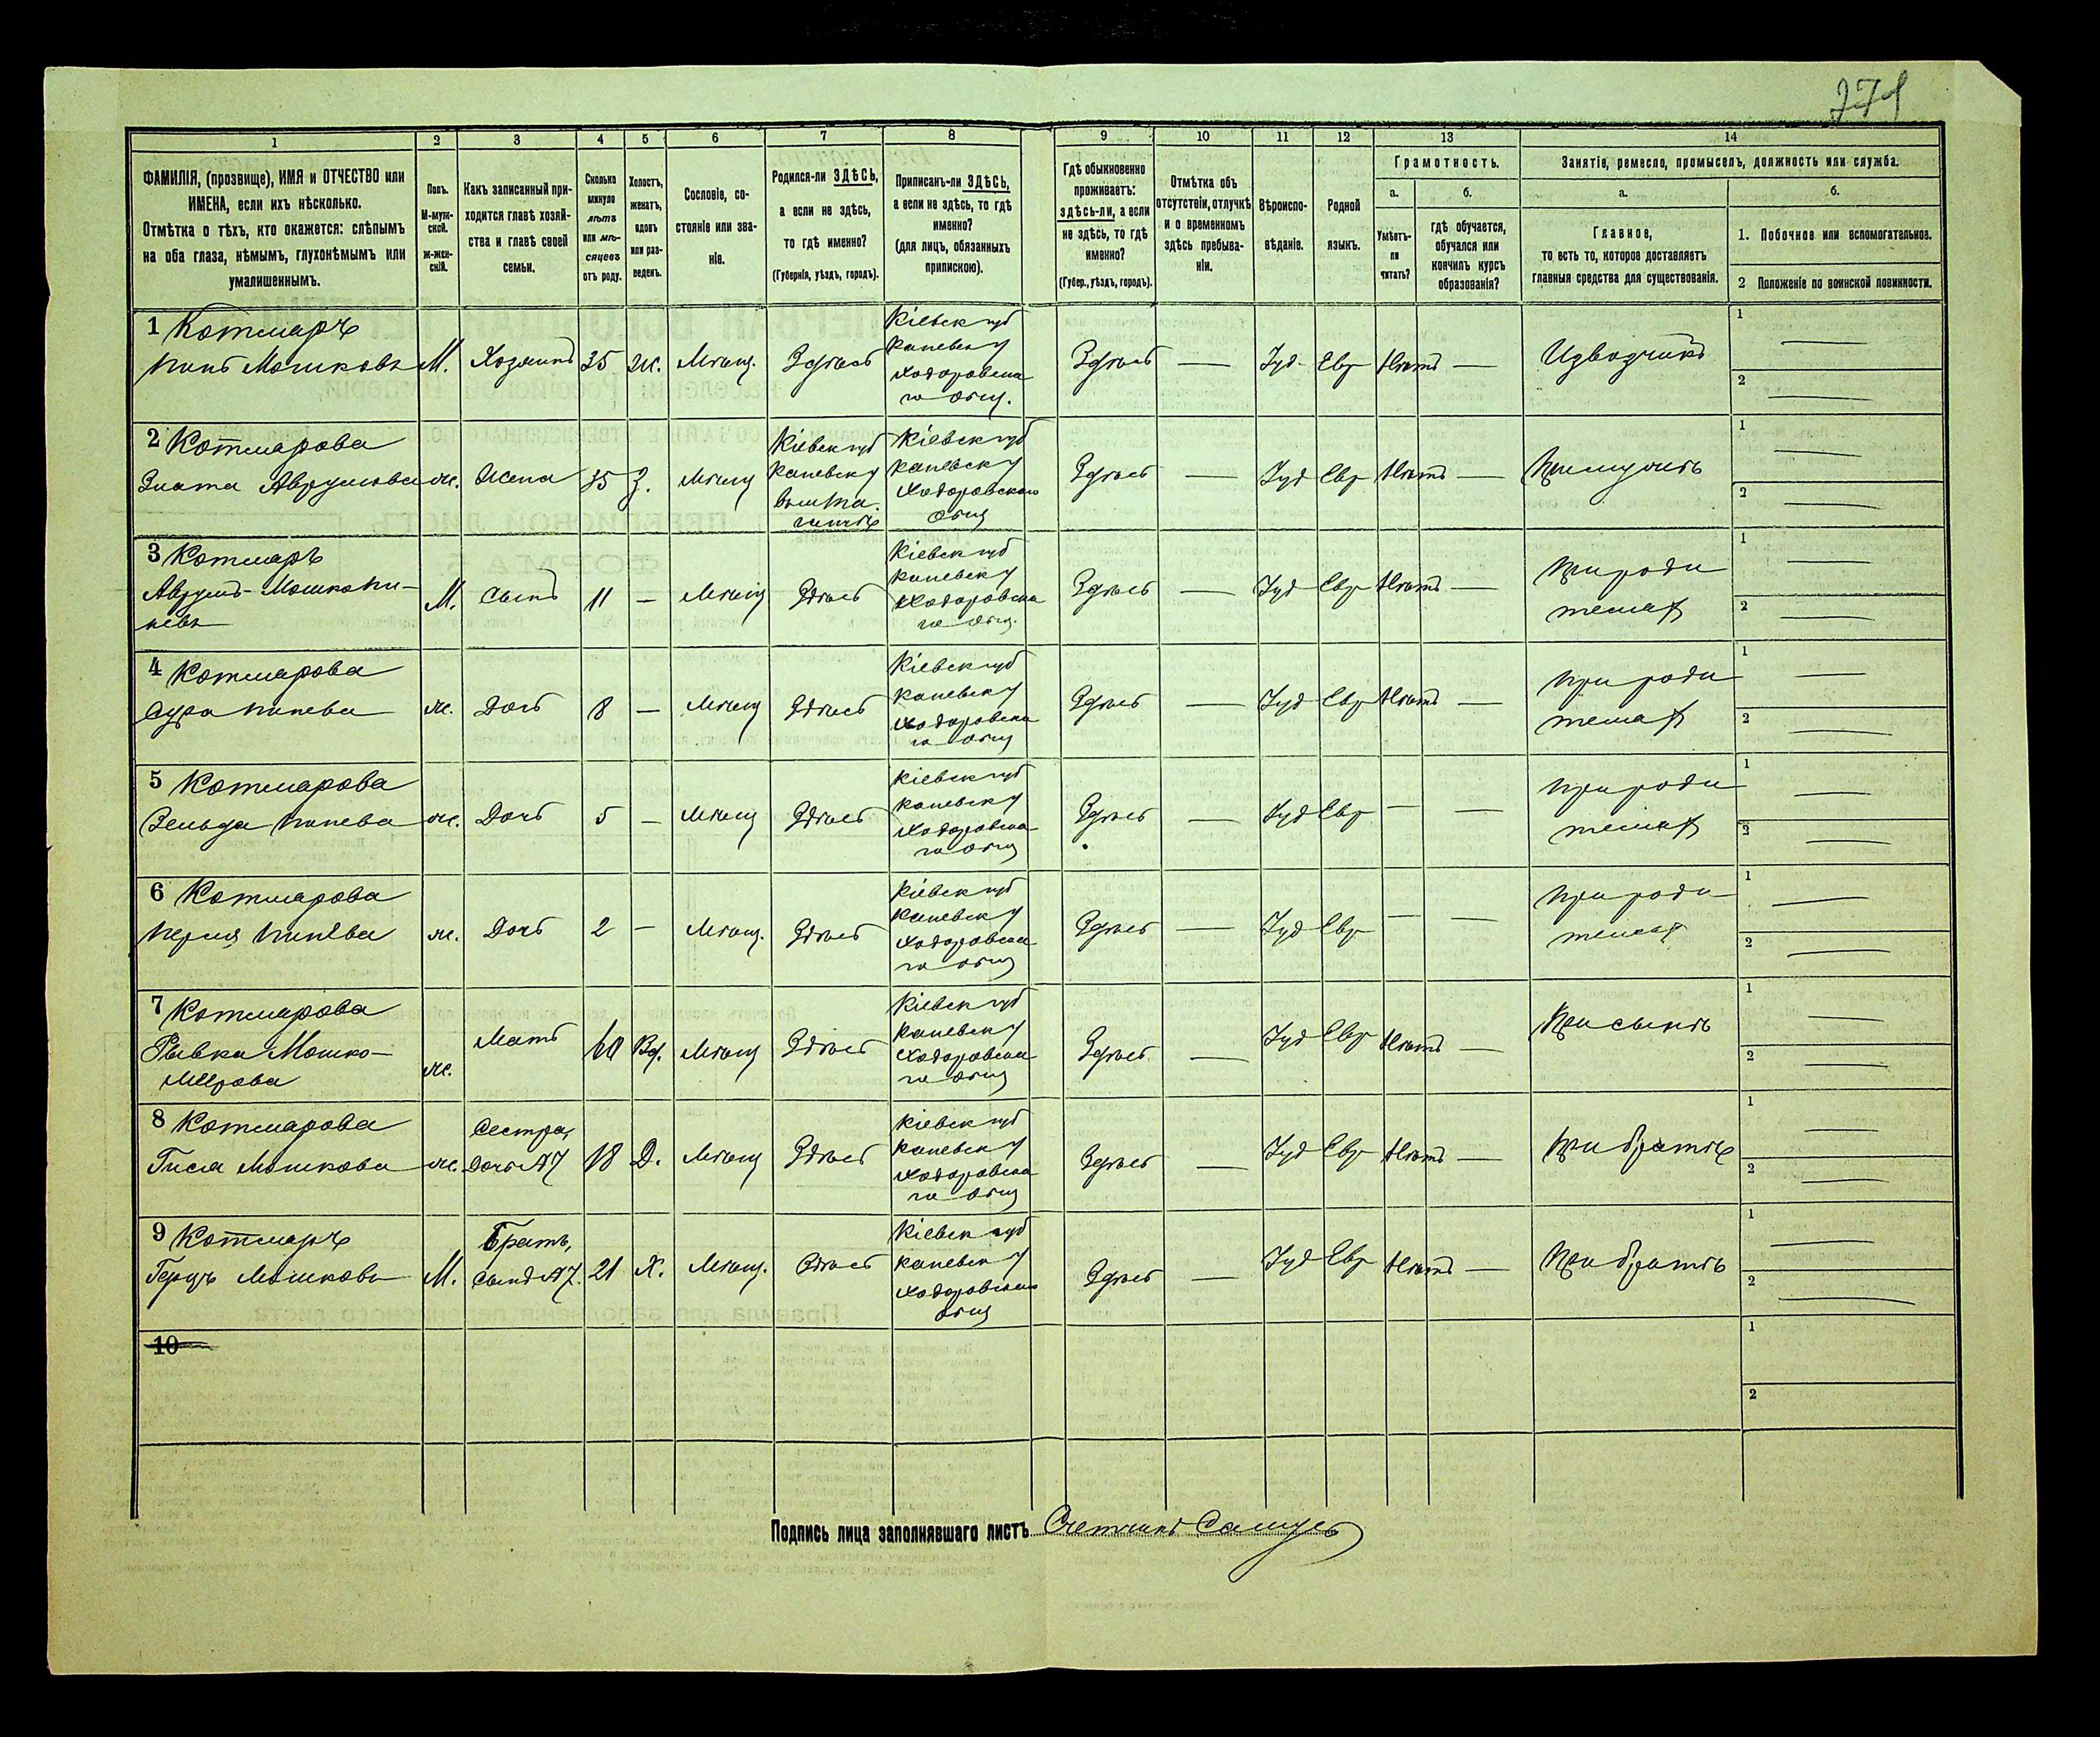 271
1 2 3 4 5 6 7 8 9 10 11 12 13 14
ФАМИЛІЯ, (прозвище), ИМЯ и ОТЧЕСТВО или
ИМЕНА, если ихъ нѣсколько.
Отмѣтка о тѣхъ, кто окажется: слѣпымъ
на оба глаза, нѣмымъ, глухонѣмымъ или
умалишеннымъ.
Полъ.
М-муж-
ской.
Ж-жен-
скій.
Какъ записанный при-
ходится главѣ хозяй-
ства и главѣ своей
семьи.
Сколько
минуло
лѣтъ
или мѣ-
сяцевъ
отъ роду.
Холостъ,
женатъ,
вдовъ
или раз-
веденъ.
Сословіе, со-
стояніе или зва-
ніе.
Родился-ли ЗДѢСЬ,
а если не здѣсь,
то гдѣ именно?
(Губернія, уѣздъ, городъ).
Приписанъ-ли ЗДѢСЬ,
а если не здѣсь, то гдѣ
именно?
(для лицъ, обязанныхъ
припискою).
Гдѣ обыкновенно
проживаетъ:
здѣсь-ли, а если
не здѣсь, то гдѣ
именно?
(Губер., уѣздъ, городъ).
Отмѣтка объ
отсутствіи, отлучкѣ
и о временномъ
здѣсь пребыва-
ніи.
Вѣроиспо-
вѣданіе.
Родной
языкъ.
Грамотность.
а.
Умѣетъ-
ли
читать?
б.
гдѣ обучается,
обучался или
кончилъ курсъ
образованія?
Занятіе, ремесло, промыселъ, должность или служба.
а.
Главное,
то есть то, которое доставляетъ
главныя средства для существованія.
б.
1. Побочное или вспомогательное.
2 Положеніе по воинской повинности.
1 Котляръ
Пинь Мошковъ М. Хозяинъ 35 Ж. Мѣщ. Здѣсь
Кіевск губ
Каневск у
Ходоровска
го общ.
Здѣсь — Іуд Евр Нѣтъ — Извозчикъ
1 —
2 —
2 Котлярова
Злата Аврумова Ж. Жена 35 З. Мѣщ
Кіевск губ
Каневск у
Кіевск губ
Каневск у
Ходоровскаго
общ
Здѣсь — Іуд Евр Нѣтъ — При мужѣ
1 —
2 —
3 Котляръ
Аврумъ-Мошко Пи-
невъ
М. Сынъ 11 — Мѣщ Здѣсь
Кіевск губ
Каневск у
Ходоровска
го общ.
Здѣсь — Іуд Евр Нѣтъ —
При роди
теляхъ
1 —
2 —
4 Котлярова
Сура Пинева Ж. Дочь 8 — Мѣщ Здѣсь
Кіевск губ
Каневск у
Ходоровска
го общ
Здѣсь — Іуд Евр Нѣтъ —
При роди
теляхъ
1 —
2 —
5 Котлярова
Зельда Пинева Ж. Дочь 5 — Мѣщ Здѣсь
Кіевск губ
Каневск у
Ходоровска
го общ
Здѣсь — Іуд Евр — —
При роди
теляхъ
1 —
2 —
6 Котлярова
Перля Пинева Ж. Дочь 2 — Мѣщ. Здѣсь
Кіевск губ
Каневск у
Ходоровска
го общ
Здѣсь — Іуд Евр — —
При роди
теляхъ
1 —
2 —
7 Котлярова
Рывка Мошко-
Меерова
Ж. Мать 60 Вд. Мѣщ Здѣсь
Кіевск губ
Каневск у
Ходоровска
го общ
Здѣсь — Іуд Евр Нѣтъ — При сынѣ
1 —
2 —
8 Котлярова
Гися Мошкова Ж.
Сестра,
Дочь №7
18 Д. Мѣщ Здѣсь
Кіевск губ
Каневск у
Ходоровска
го общ
Здѣсь — Іуд Евр Нѣтъ — При братѣ
1 —
2 —
9 Котляръ
Герцъ Мошковъ М.
Братъ,
Сынъ №7.
21 Х. Мѣщ. Здѣсь
Кіевск губ
Каневск у
Ходоровскаго
общ
Здѣсь — Іуд Евр Нѣтъ — При братѣ
1 —
2 —
10
1
2
Подпись лица заполнявшаго листъ Счетчикъ